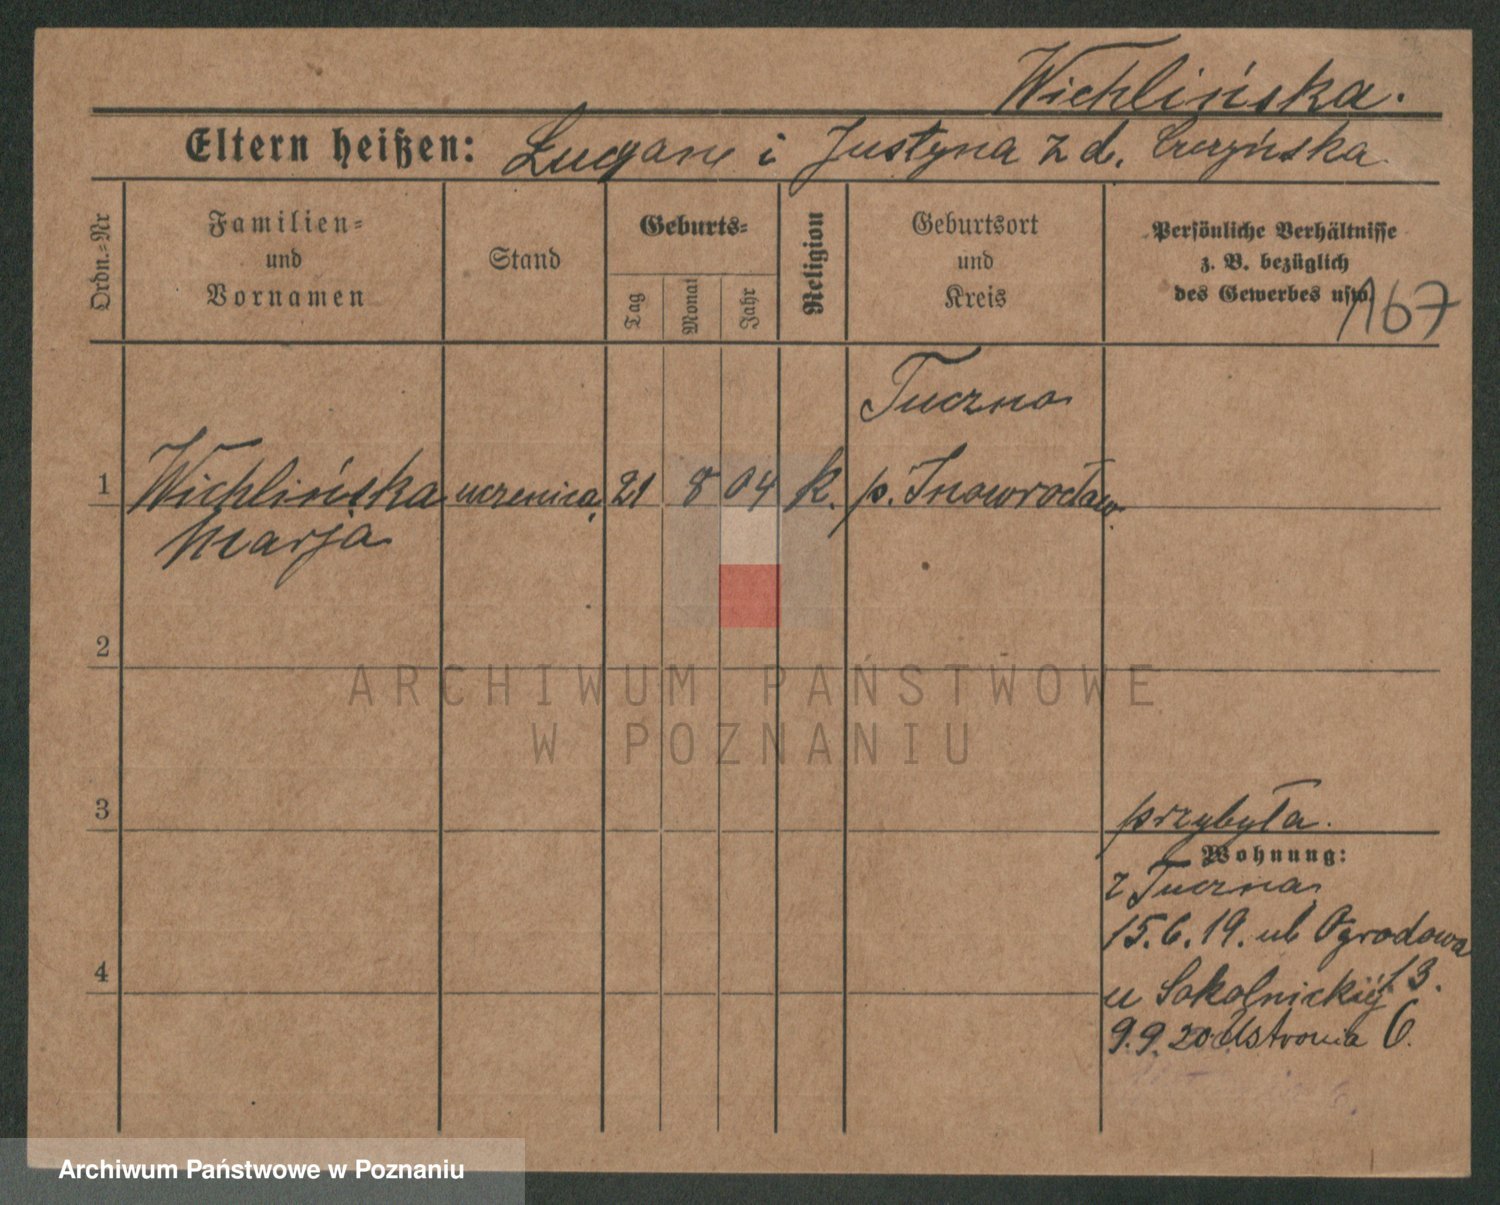 Wichlińska.
Eltern heißen: i Justyna z d.
Ordn.=Nr
Familien=
und
Vornamen
Stand
Geburts=
Tag
Monat
Jahr
Religion
Geburtsort
und
Kreis
Persönliche Verhältnisse
z. B. bezüglich
des Gewerbes usw.
167
Tuczno
1 Wichlińska uczenica 21 8 04 k. p. Inowrocław.
Marja
2
ARCHIWUM PAŃSTWOWE
W POZNANIU
3
przybyła.
Wohnung:
z Tuczna
15.6.19. ul Ogrodowa
13.
4
u Sokolnickiej
9.9.20. Ustronia 6.
Archiwum Państwowe w Poznaniu